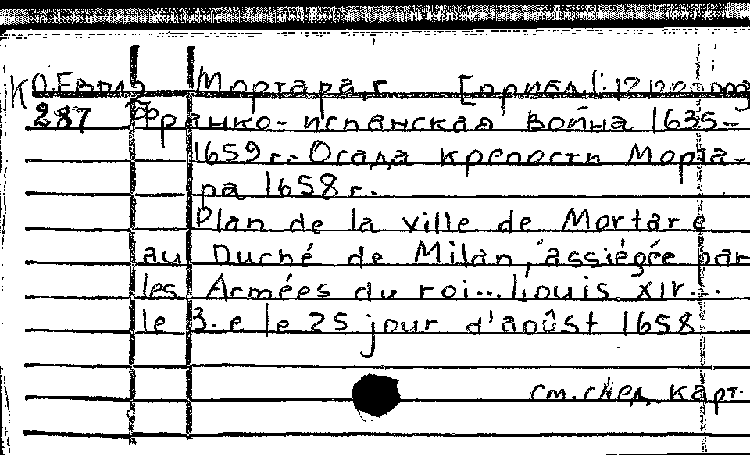 К О.Евро Мортара, г. [прибл. 1:12 000]
287 Франко-испанская война 1635-
1659 г. Осада крепости Морта-
ра 1658 г.
Plan de la ville de Mortare
au Duché de Milan, assiégée par
les Armées du roi... Louis XIV...
le 3. e le 25 jour d'aoûst 1658
см. след. карт.